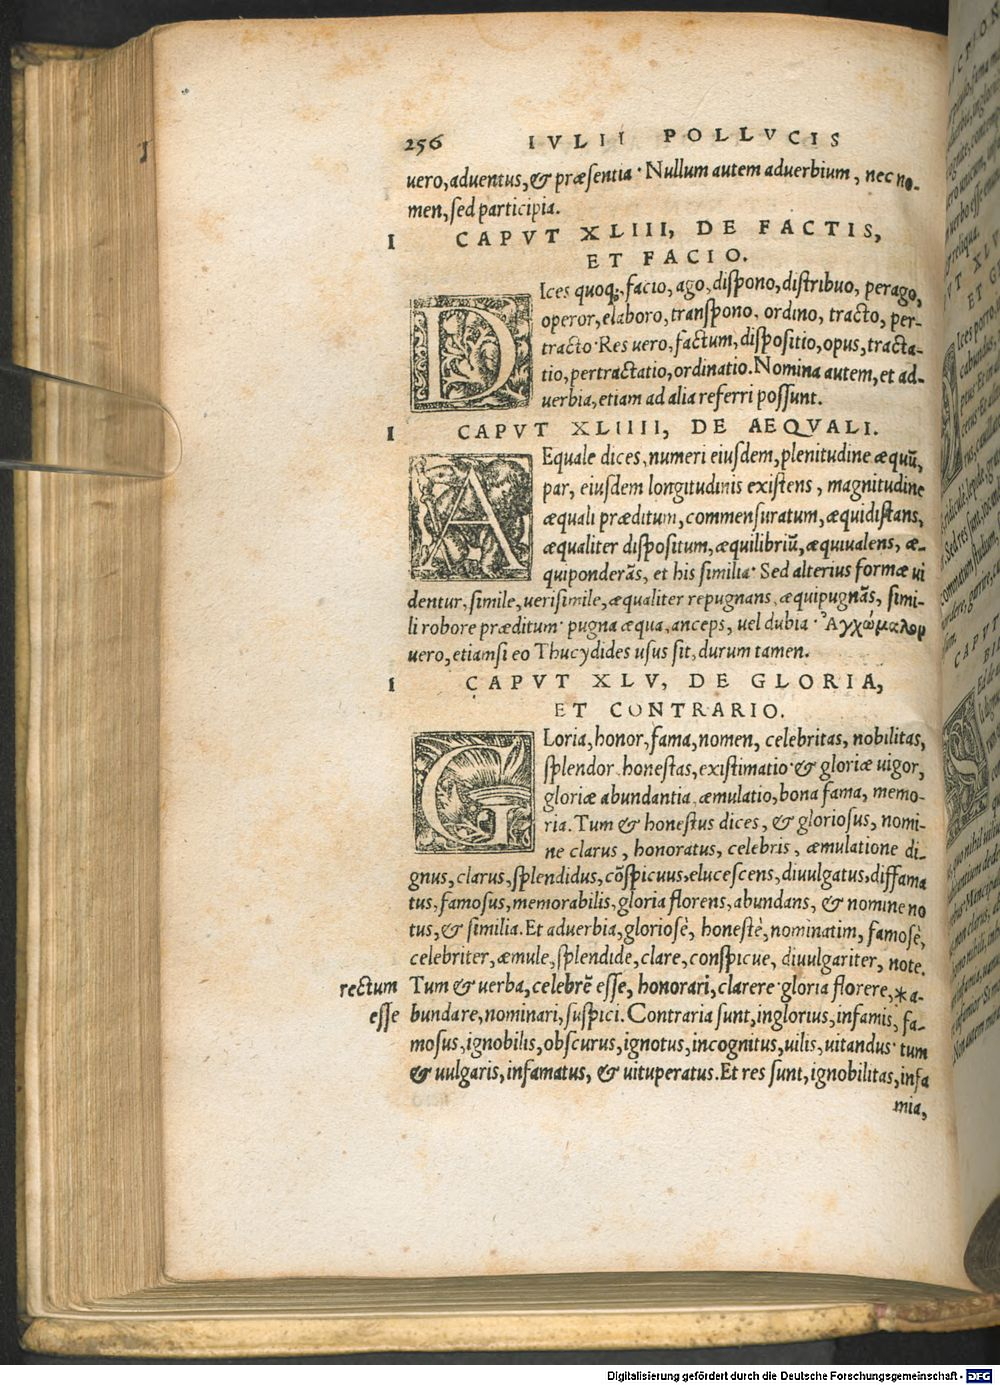 256 IVLII POLLVCIS
uero, aduentus, & præsentia · Nullum autem aduerbium, nec no-
men, sed participia.
I CAPVT XLIII, DE FACTIS,
ET FACIO.
DIces quoq;, facio, ago, dispono, distribuo, perago,
operor, elaboro, transpono, ordino, tracto, per-
tracto · Res uero, factum, dispositio, opus, tracta-
tio, pertractatio, ordinatio. Nomina autem, et ad-
uerbia, etiam ad alia referri possunt.
I CAPVT XLIIII, DE AEQVALI.
AEquale dices, numeri eiusdem, plenitudine æquũ,
par, eiusdem longitudinis existens, magnitudine
æquali præditum, commensuratum, æquidistans,
æqualiter dispositum, æquilibriũ, æquiualens, æ-
quiponderãs, et his similia · Sed alterius formæ ui
dentur, simile, uerisimile, æqualiter repugnans, æquipugnãs, simi-
li robore præditum · pugna æqua, anceps, uel dubia · Ἀγχώμαλον
uero, etiamsi eo Thucydides usus sit, durum tamen.
I CAPVT XLV, DE GLORIA,
ET CONTRARIO.
GLoria, honor, fama, nomen, celebritas, nobilitas,
splendor, honestas, existimatio · & gloriæ uigor,
gloriæ abundantia, æmulatio, bona fama, memo-
ria. Tum & honestus dices, & gloriosus, nomi-
ne clarus, honoratus, celebris, æmulatione di-
gnus, clarus, splendidus, cõspicuus, elucescens, diuulgatus, diffama
tus, famosus, memorabilis, gloria florens, abundans, & nomine no
tus, & similia. Et aduerbia, gloriosè, honestè, nominatim, famosè,
celebriter, æmule, splendide, clare, conspicue, diuulgariter, note.
rectum Tum & uerba, celebrẽ esse, honorari, clarere · gloria florere, * a-
esse bundare, nominari, suspici. Contraria sunt, inglorius, infamis, fa-
mosus, ignobilis, obscurus, ignotus, incognitus, uilis, uitandus · tum
& uulgaris, infamatus, & uituperatus. Et res sunt, ignobilitas, infa
mia,
Digitalisierung gefördert durch die Deutsche Forschungsgemeinschaft - DFG